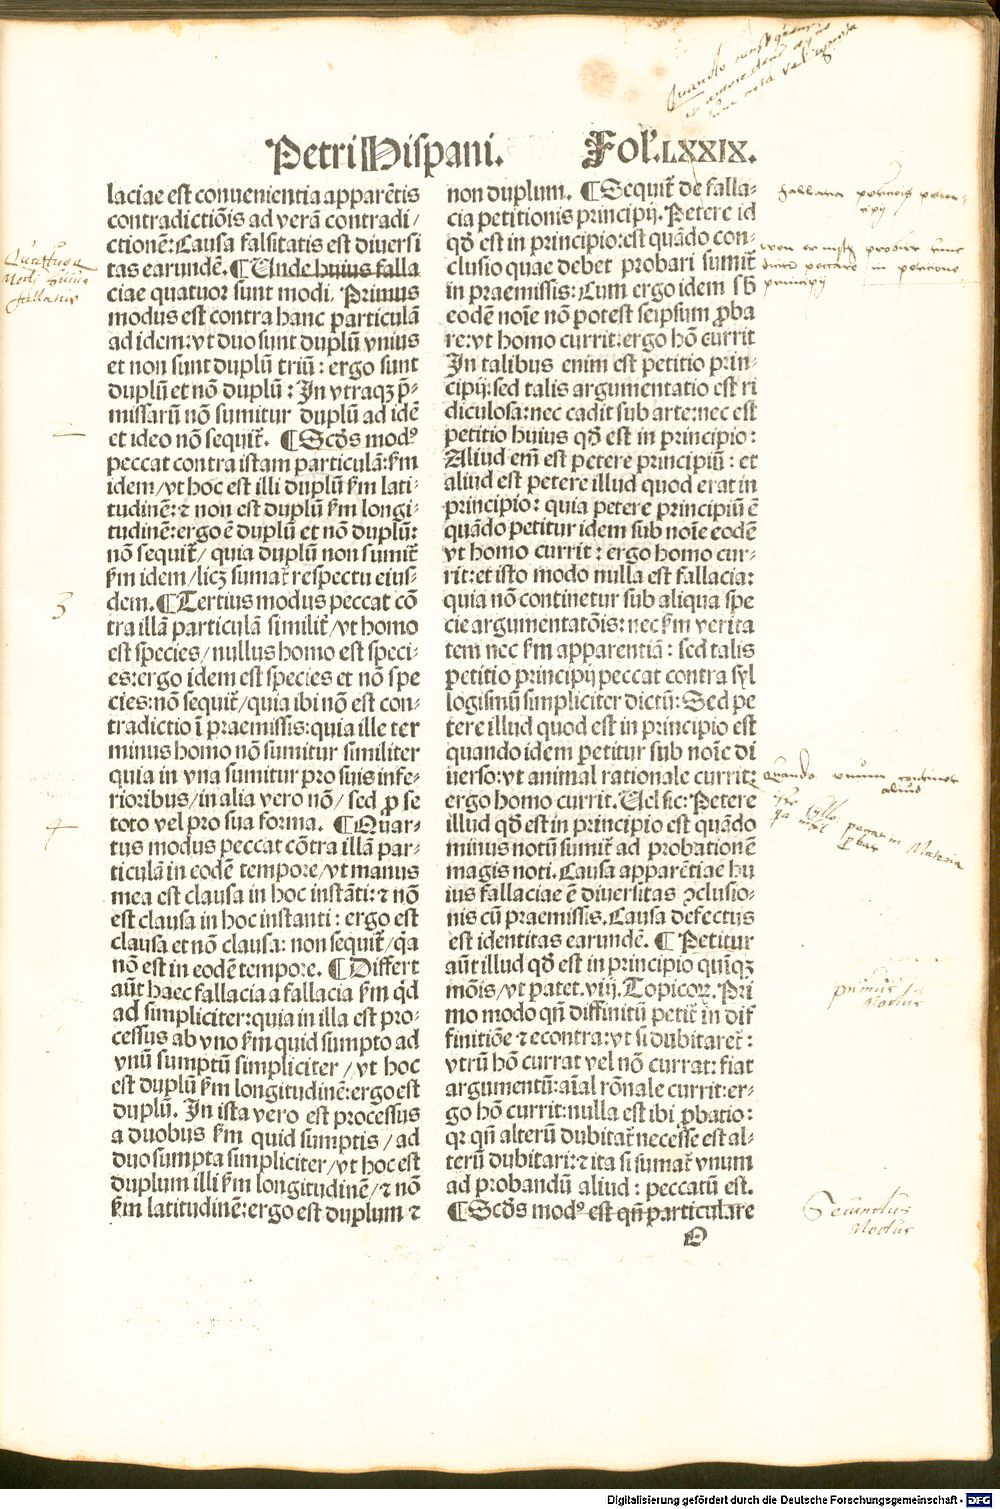 Petri Hispani. Fol'. LXXIX.
laciae est conuenientia apparẽtis
contradictiõis ad verã contradi/
ctionẽ: Causa falsitatis est diuersi
tas earundẽ. ¶ Unde huius falla
ciae quatuor sunt modi. Primus
modus est contra hanc particulã
ad idem: vt duo sunt duplũ vnius
et non sunt duplũ triũ: ergo sunt
duplũ et nõ duplũ: In vtraqꝫ p̃-
missarũ nõ sumitur duplũ ad idẽ
et ideo nõ sequit̃. ¶ Scd̃s modꝰ
peccat contra istam particulã: ẞm
idem/vt hoc est illi duplũ ẞm lati-
tudinẽ: ⁊ non est duplũ ẞm longi-
tudinẽ: ergo ẽ duplũ et nõ duplũ:
nõ sequit̃/ quia duplũ non sumit̃
ẞm idem/licꝫ sumat̃ respectu eius-
dem. ¶ Tertius modus peccat cõ
tra illã particulã similit̃/vt homo
est species/nullus homo est speci-
es: ergo idem est species et nõ spe
cies: nõ sequit̃/quia ibi nõ est con-
tradictio ĩ praemissis: quia ille ter
minus homo nõ sumitur similiter
quia in vna sumitur pro suis infe-
rioribus/in alia vero nõ/ sed ꝓ se
toto vel pro sua forma. ¶ Quar-
tus modus peccat cõtra illã par-
ticulã in eodẽ tempore/vt manus
mea est clausa in hoc instãti: ⁊ nõ
est clausa in hoc instanti: ergo est
clausa et nõ clausa: non sequit̃/q̃a
nõ est in eodẽ tempore. ¶ Differt
aũt haec fallacia a fallacia ẞm q̃d
ad simpliciter: quia in illa est pro-
cessus ab vno ẞm quid sumpto ad
vnũ sumptũ simpliciter/vt hoc
est duplũ ẞm longitudinẽ: ergo est
duplũ. In ista vero est processus
a duobus ẞm quid sumptis/ad
duo sumpta simpliciter/vt hoc est
duplum illi ẞm longitudinẽ/⁊ nõ
ẞm latitudinẽ: ergo est duplum ⁊
non duplum. ¶ Sequit̃ de falla-
cia petitionis principij. Petere id
qd̃ est in principio: est quãdo con-
clusio quae debet probari sumit̃
in praemissis: Cum ergo idem sb̃
eodẽ noĩe nõ potest seipsum ꝓba
re: vt homo currit: ergo hõ currit
In talibus enim est petitio prin-
cipij: sed talis argumentatio est ri
diculosa: nec cadit sub arte: nec est
petitio huius qd̃ est in principio:
Aliud em̃ est petere principiũ: et
aliud est petere illud quod erat in
principio: quia petere principiũ ẽ
quãdo petitur idem sub noĩe eodẽ
vt homo currit: ergo homo cur-
rit: et isto modo nulla est fallacia:
quia nõ continetur sub aliqua spe
cie argumentatõis: nec ẞm verita
tem nec ẞm apparentiã: sed talis
petitio principij peccat contra syl
logismũ simpliciter dictũ: Sed pe
tere illud quod est in principio est
quando idem petitur sub noĩe di
uerso: vt animal rationale currit:
ergo homo currit. Uel sic: Petere
illud qd̃ est in principio est quãdo
minus notũ sumit̃ ad probationẽ
magis noti. Causa apparẽtiae hu
ius fallaciae ẽ diuersitas ꝯclusio-
nis cũ praemissis. Causa defectus
est identitas earundẽ. ¶ Petitur
aũt illud qd̃ est in principio quĩqꝫ
mõis/vt patet. viij. Topicoꝝ. Pri
mo modo qñ diffinitũ petit̃ in dif
finitiõe ⁊ econtra: vt si dubitaret̃:
vtrũ hõ currat vel nõ currat: fiat
argumentũ: aĩal rõnale currit: er-
go hõ currit: nulla est ibi ꝓbatio:
qꝛ qñ alterũ dubitat̃ necesse est al-
terũ dubitari: ⁊ ita si sumat̃ vnum
ad probandũ aliud: peccatũ est.
¶ Scd̃s modꝰ est qñ particulare
O
2
3
4
primus
Modus
Secundus
Modus